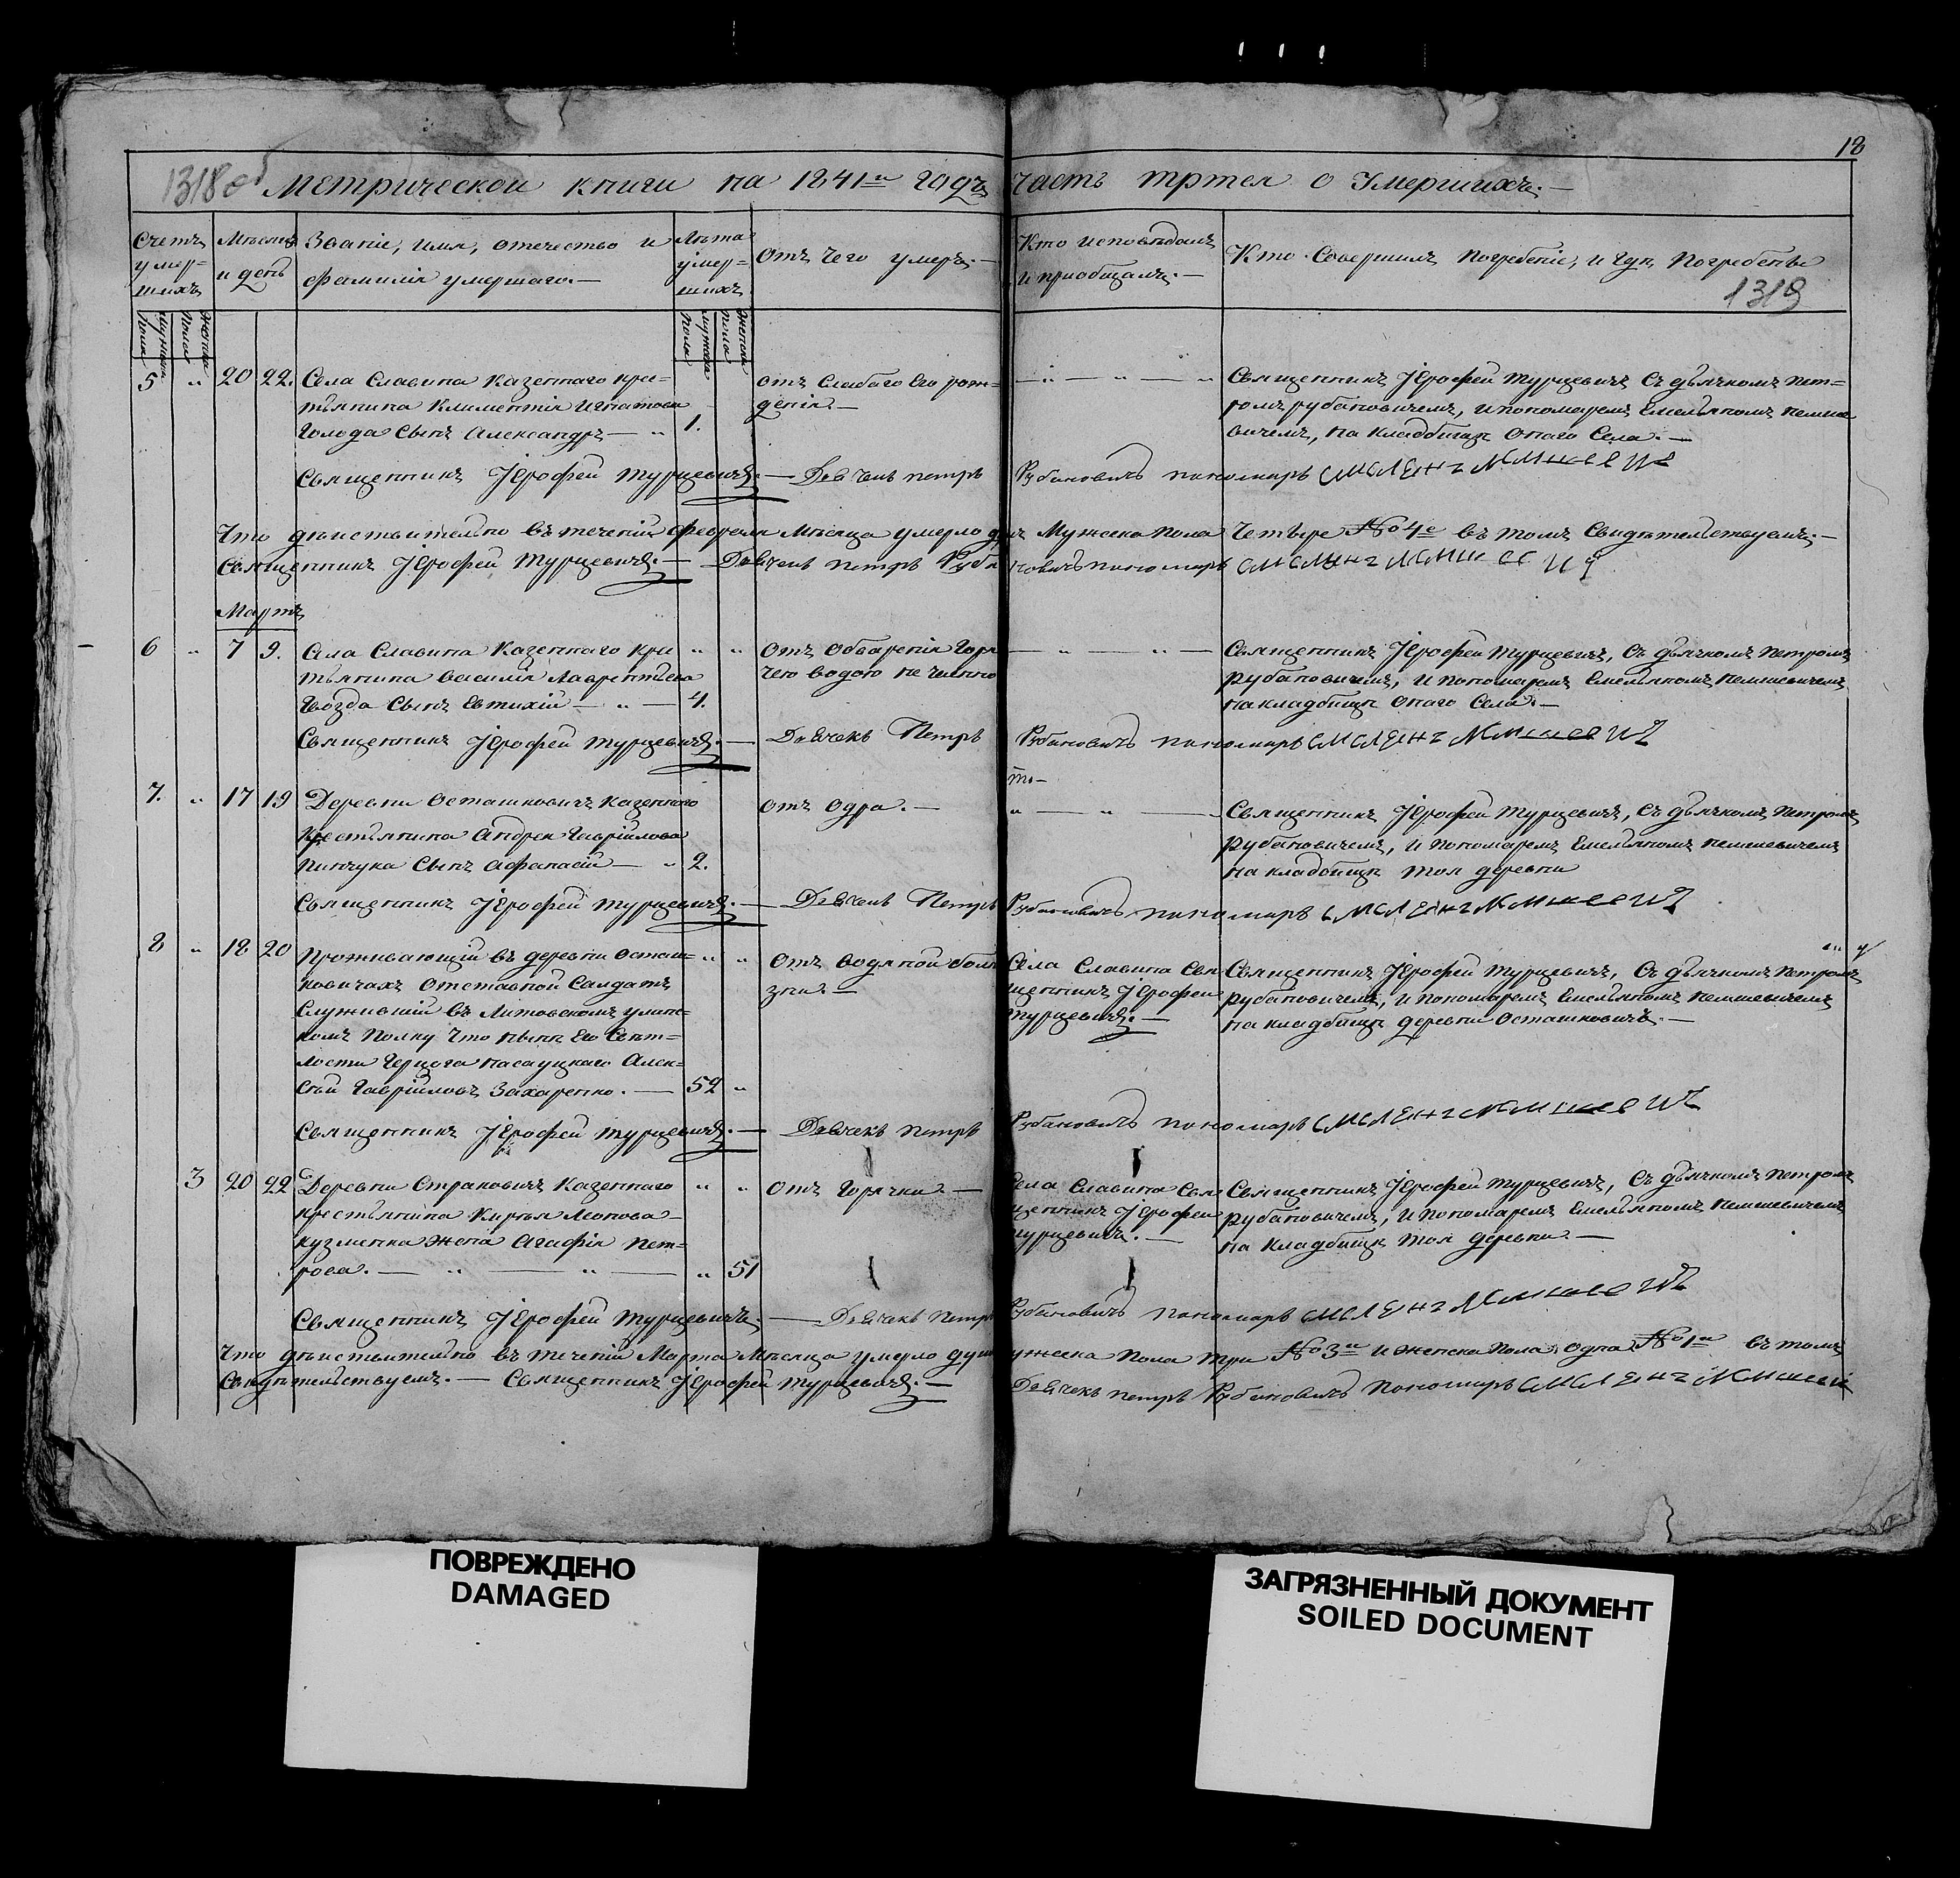 18
1318 об Метрической книги на 1841й годъ часть третея о Умершихъ.—
Счетъ умер=шихъ
Мѣсяцъ и день
Званіе, имя, отечество и фамилія умершаго.—
Лѣта умер=шихъ
Отъ чего умеръ.—
Кто исповѣдалъ и приобщалъ.—
Кто Совершилъ погребеніе, и гдѣ погребены
1319
Мужеска пола
Женска пола
Мужеска пола
Женска пола
5 „ 20 22. Села Славина Казеннаго кре=
стьянина Климентія Игнатова
Голода Сынъ Александръ — „ 1.
отъ слабаго его рож=
денія.—
Священникъ Іерофей Турцевичъ съ дьячкомъ Пет=
ромъ Рубановичемъ, и пономаремъ Емельяномъ
вичемъ, на кладбищѣ онаго Села.—
Священникъ Іерофей Турцевичъ.— Дьячекъ Петръ Рубановичъ пономарь
Что дѣйствительно въ теченіи февраля Мѣсяца умерло душъ Мужеска пола Четыре №4е въ томъ Свидѣтельствуемъ.—
Священникъ Іерофей Турцевичъ.— Дьячекъ Петръ Рубановичъ пономарь
Мартъ
6 „ 7 9. Села Славина Казеннаго Кре
стьянина Василія Лаврентьева
Гвозда Сынъ Евтихій — „ — 4.
Отъ обваренія горя
чею водою не чаянно
Священникъ Іерофей Турцевичъ, съ дьячкомъ Петромъ
Рубановичемъ, и пономаремъ Емельяномъ
на кладбищѣ онаго Села.—
Священникъ Іерофей Турцевичъ.— Дьячекъ Петръ Рубановичъ пономарь
7. „ 17 19 Деревни Осташковичъ Казеннаго
Крестьянина Андрея Гавріилова
Пинчука Сынъ Афанасій — „ 2.
отъ одра.—
Священникъ Іерофей Турцевичъ, съ дьячкомъ Петромъ
Рубановичемъ, и пономаремъ Емельяномъ
на кладбищѣ тоя деревни
Священникъ Іерофей Турцевичъ.— Дьячекъ Петръ Рубановичъ пономарь
8 „ 18 20 Проживающій въ деревни Осташ=
ковичахъ отставной Салдатъ
Служившій въ Литовскомъ улан=
комъ Полку что нынѣ Его Свѣт=
лости Герцога Насауцкаго Алек=
сѣй Гавріиловъ Захаренко.— 52 „
Отъ водяной болѣ
зни.—
Села Славина Свя
щенникъ Іерофей
Турцевичъ.—
Священникъ Іерофей Турцевичъ, съ дьячкомъ Петромъ
Рубановичемъ, и пономаремъ Емельяномъ
на кладбищѣ деревни Осташковичъ.—
Священникъ Іерофей Турцевичъ.— Дьячекъ Петръ Рубановичъ пономарь
3 20 22 Деревни Страковичъ Казеннаго
крестьянина Кирила Леонова
Кузменка жена Агафія Пет=
рова.— „ — „ — „ 51
Отъ Горячки.—
Села Славина Свя
щенникъ Іерофей
Турцевичъ.—
Священникъ Іерофей Турцевичъ, съ дьячкомъ Петромъ
Рубановичемъ, и пономаремъ Емельяномъ
на кладбищѣ тоя деревни.—
Священникъ Іерофей Турцевичъ.— Дьячекъ Петръ Рубановичъ пономарь
Что дѣйствительно въ теченіи Марта Мѣсяца умерло душъ ужеска пола три №3й и женска пола одна №1й въ томъ
Свидѣтельствуемъ.— Священникъ Іерофей Турцевичъ.— Дьячекъ Петръ Рубановичъ пономарь
ПОВРЕЖДЕНО
DAMAGED
ЗАГРЯЗНЕННЫЙ ДОКУМЕНТ
SOILED DOCUMENT